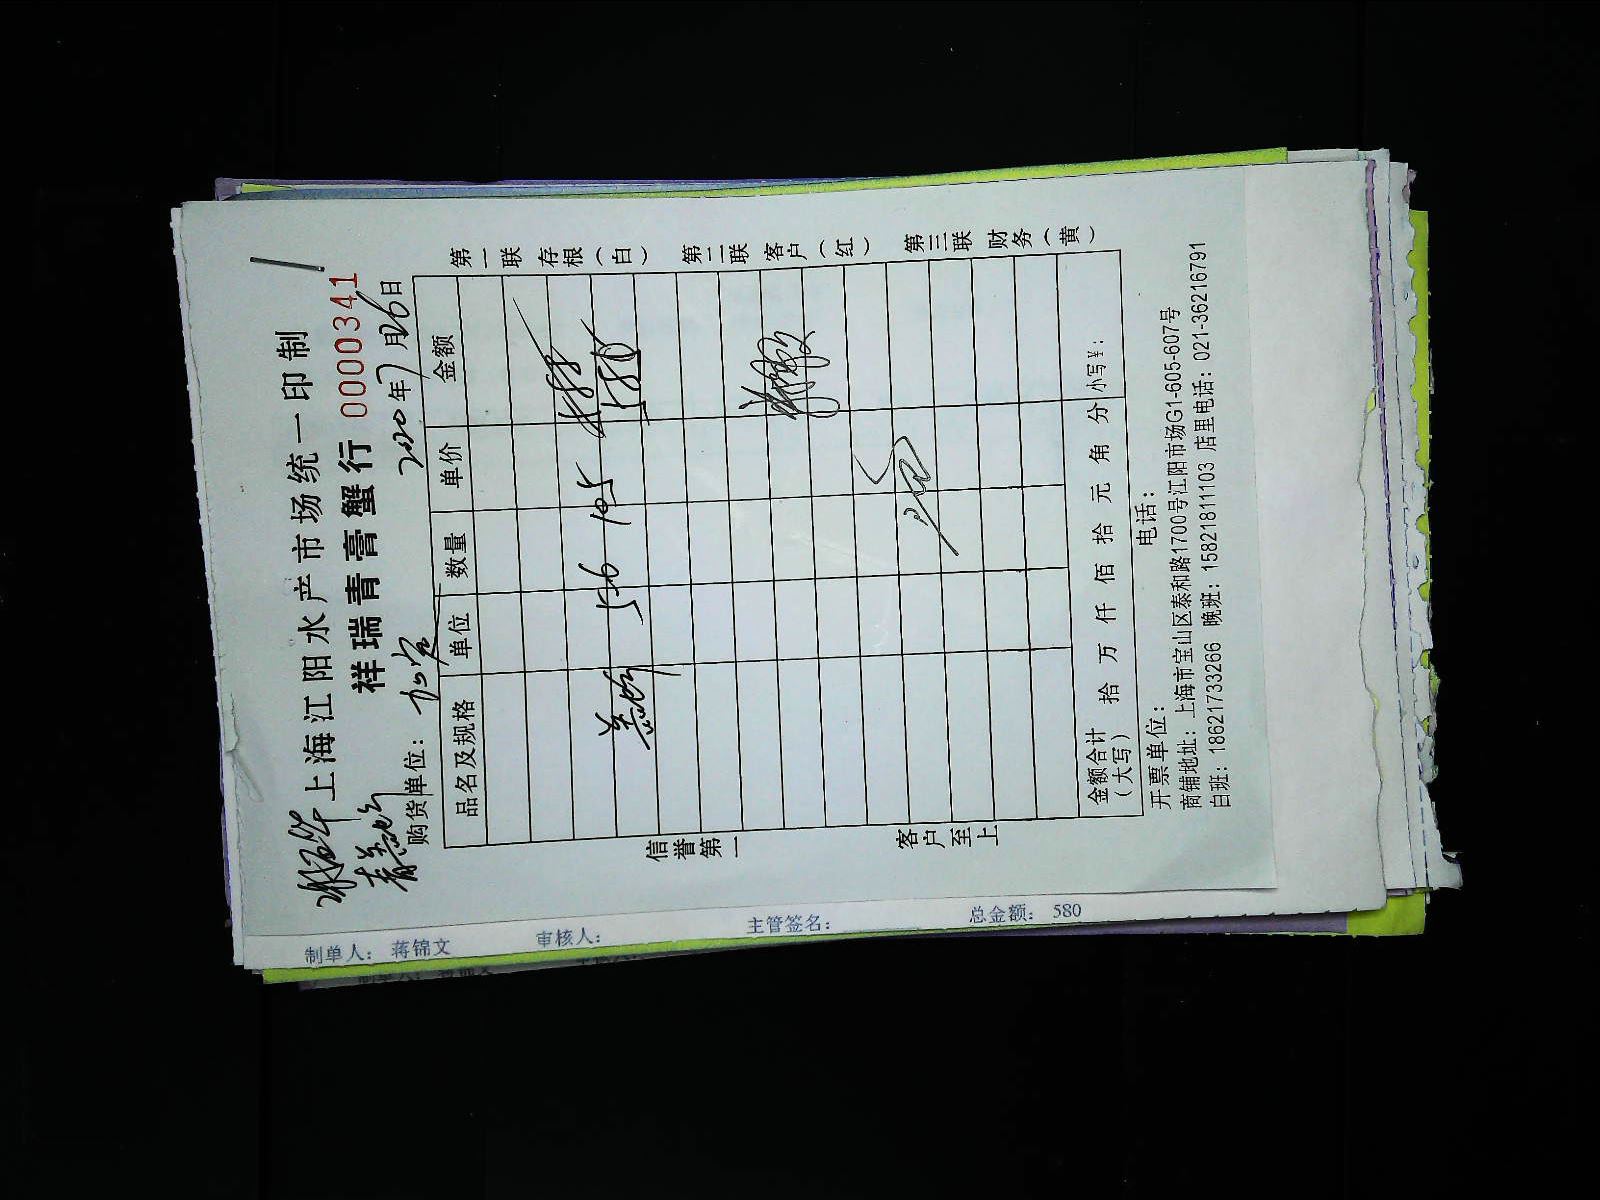 上海江阳水产市场统一印制
祥瑞青膏蟹行 0000341
2020年7月26日
购货单位：
品名及规格 单位 数量 单价 金额
5.6 105 588
580
金额合计（大写） 拾 万 仟 佰 拾 元 角 分 小写￥：
开票单位： 电话：
商铺地址：上海市宝山区泰和路1700号江阳市场G1-605-607号
白班：18621733266 晚班：15821811103 店里电话：021-36216791
第一联 存根（白） 第二联 客户（红） 第三联 财务（黄）
信誉第一 客户至上
制单人： 蒋锦文 审核人： 主管签名： 总金额： 580